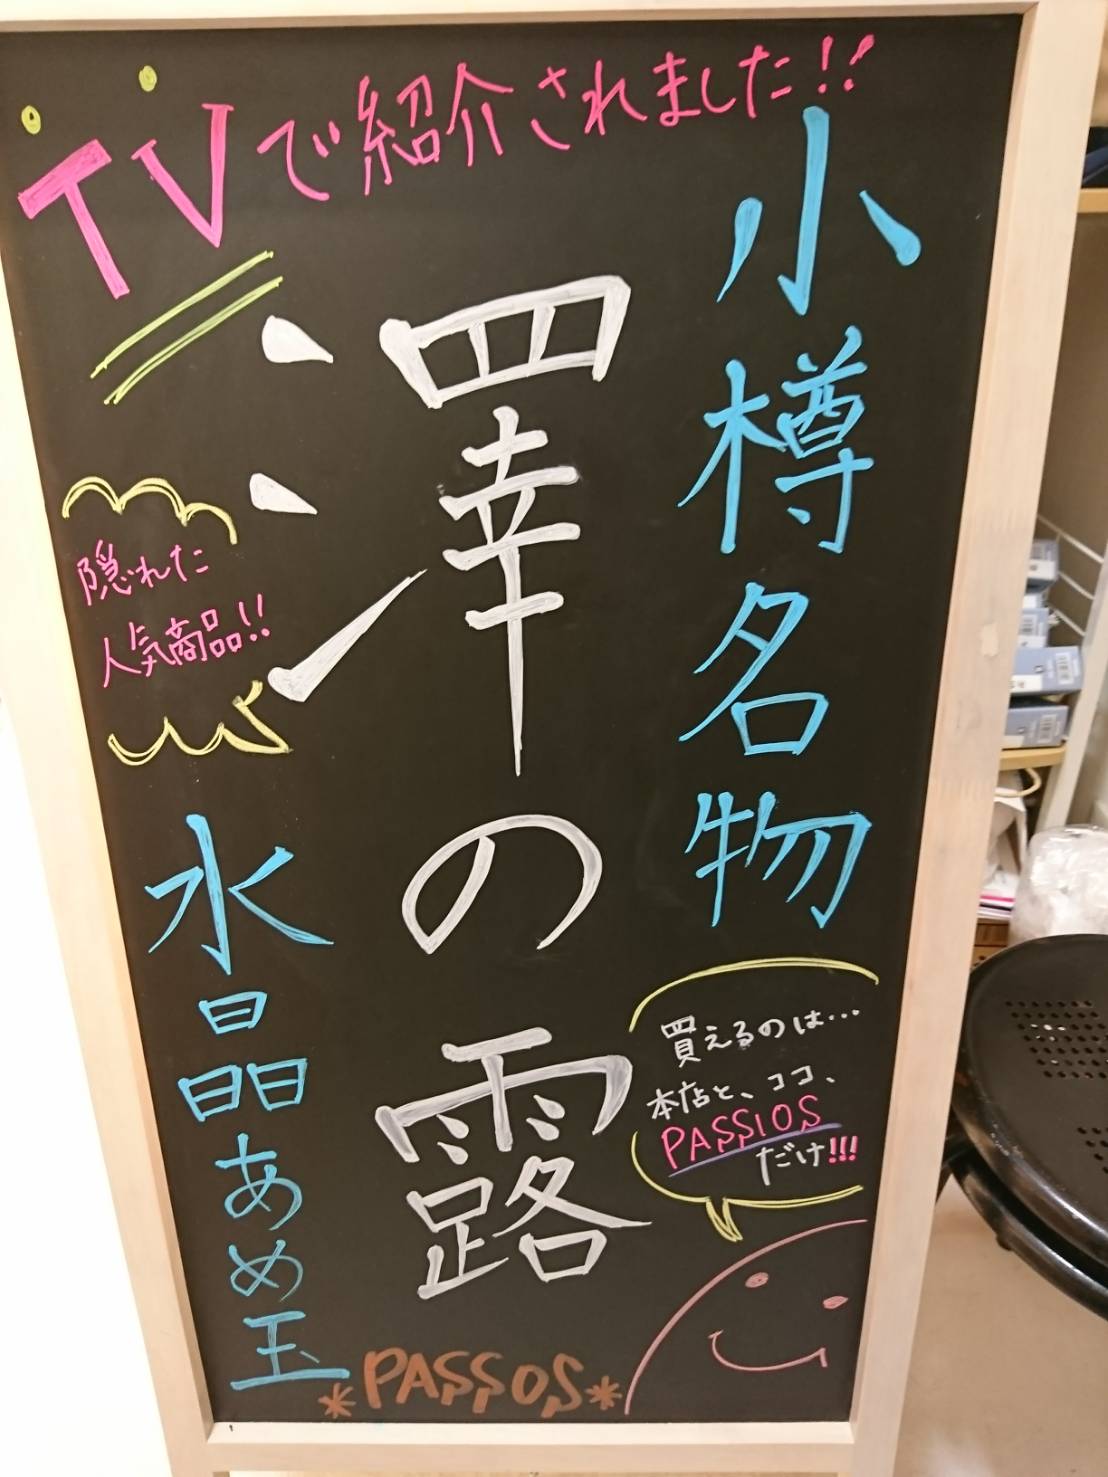 TVで紹介されました!!
小樽名物
澤の露
水晶あめ玉
隠れた
人気商品!!
買えるのは…
本店と、ココ、
PASSIOS
だけ!!!
*PASSOS*